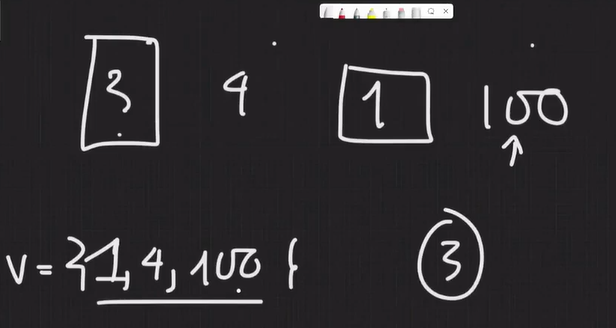 3 4 1 100
v = {1, 4, 100 } 3